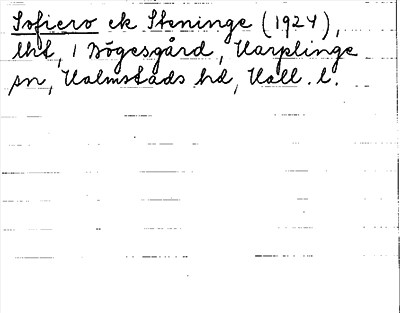 Sofiero ek Steninge (1924),
lht, 1 Bögesgård, Harplinge
sn, Halmstads hd, Hall. l.